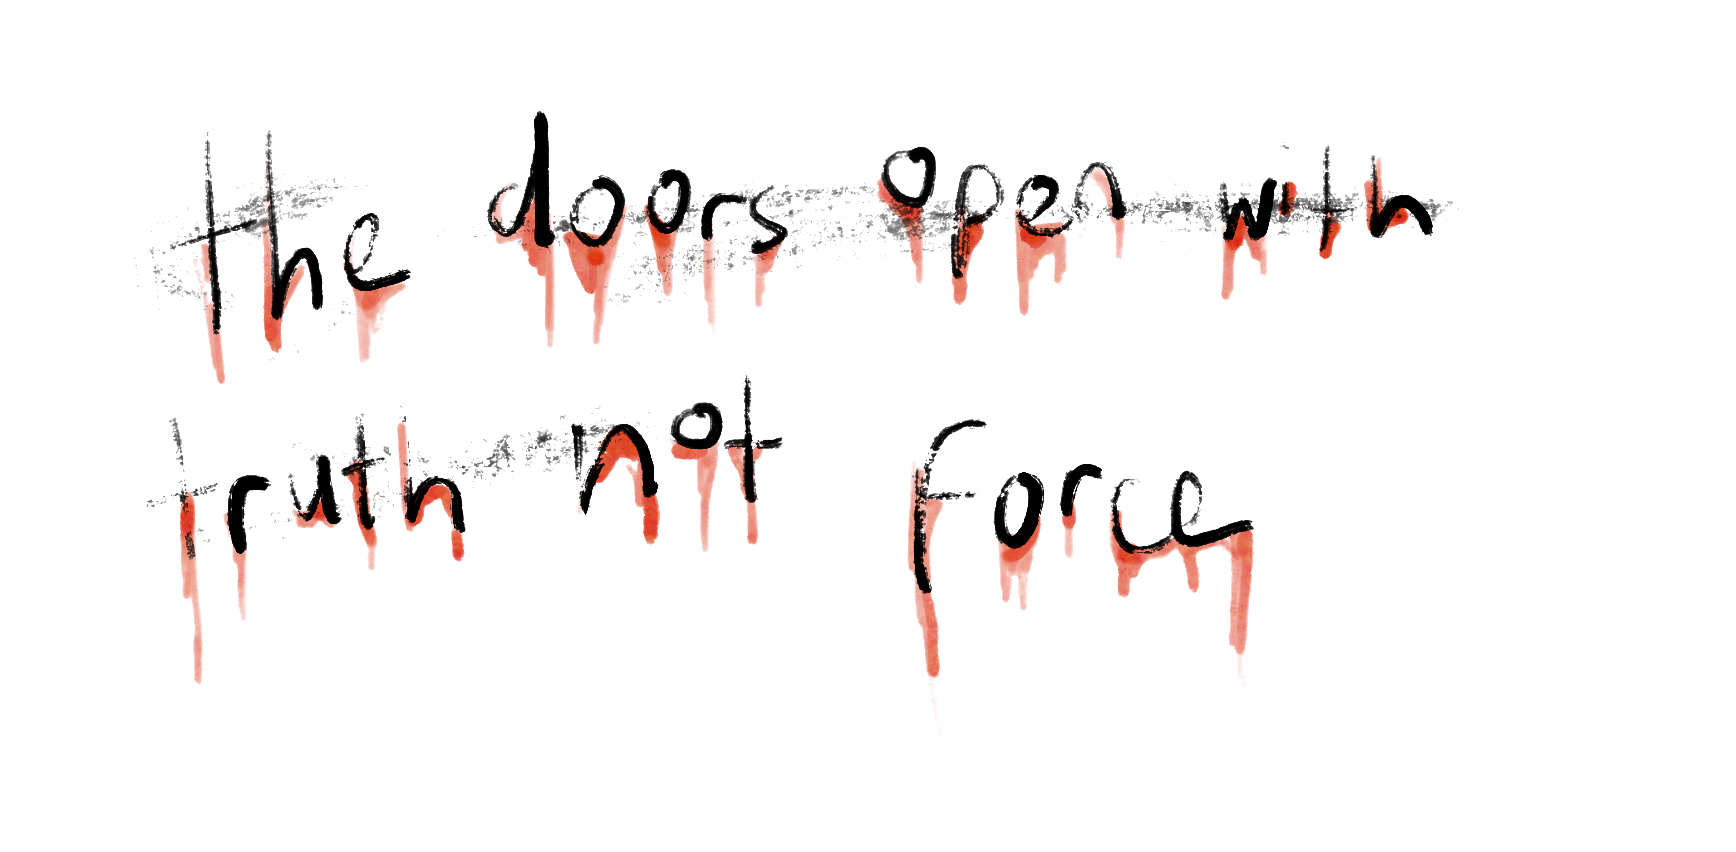 the doors open with
truth not force